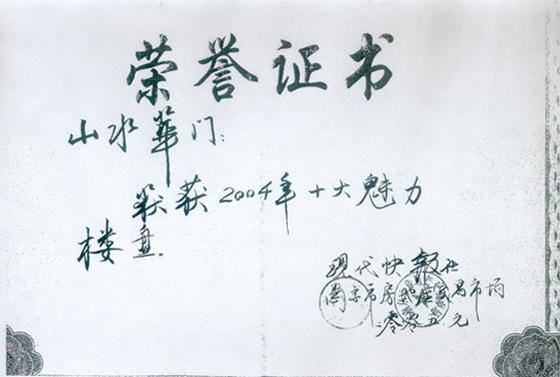 荣誉证书
山水華门:
荣获2004年十大魅力
楼盘.
现代快报社
南京市房地产交易市场
二零零五.元